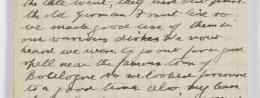 the late went, they were out
the old German Front line so
we made good use of them in
our various dishes. We now
heard we were to go out for a good
spell near the famous town of
Boulogne so we looked forward
to a good time also my leave